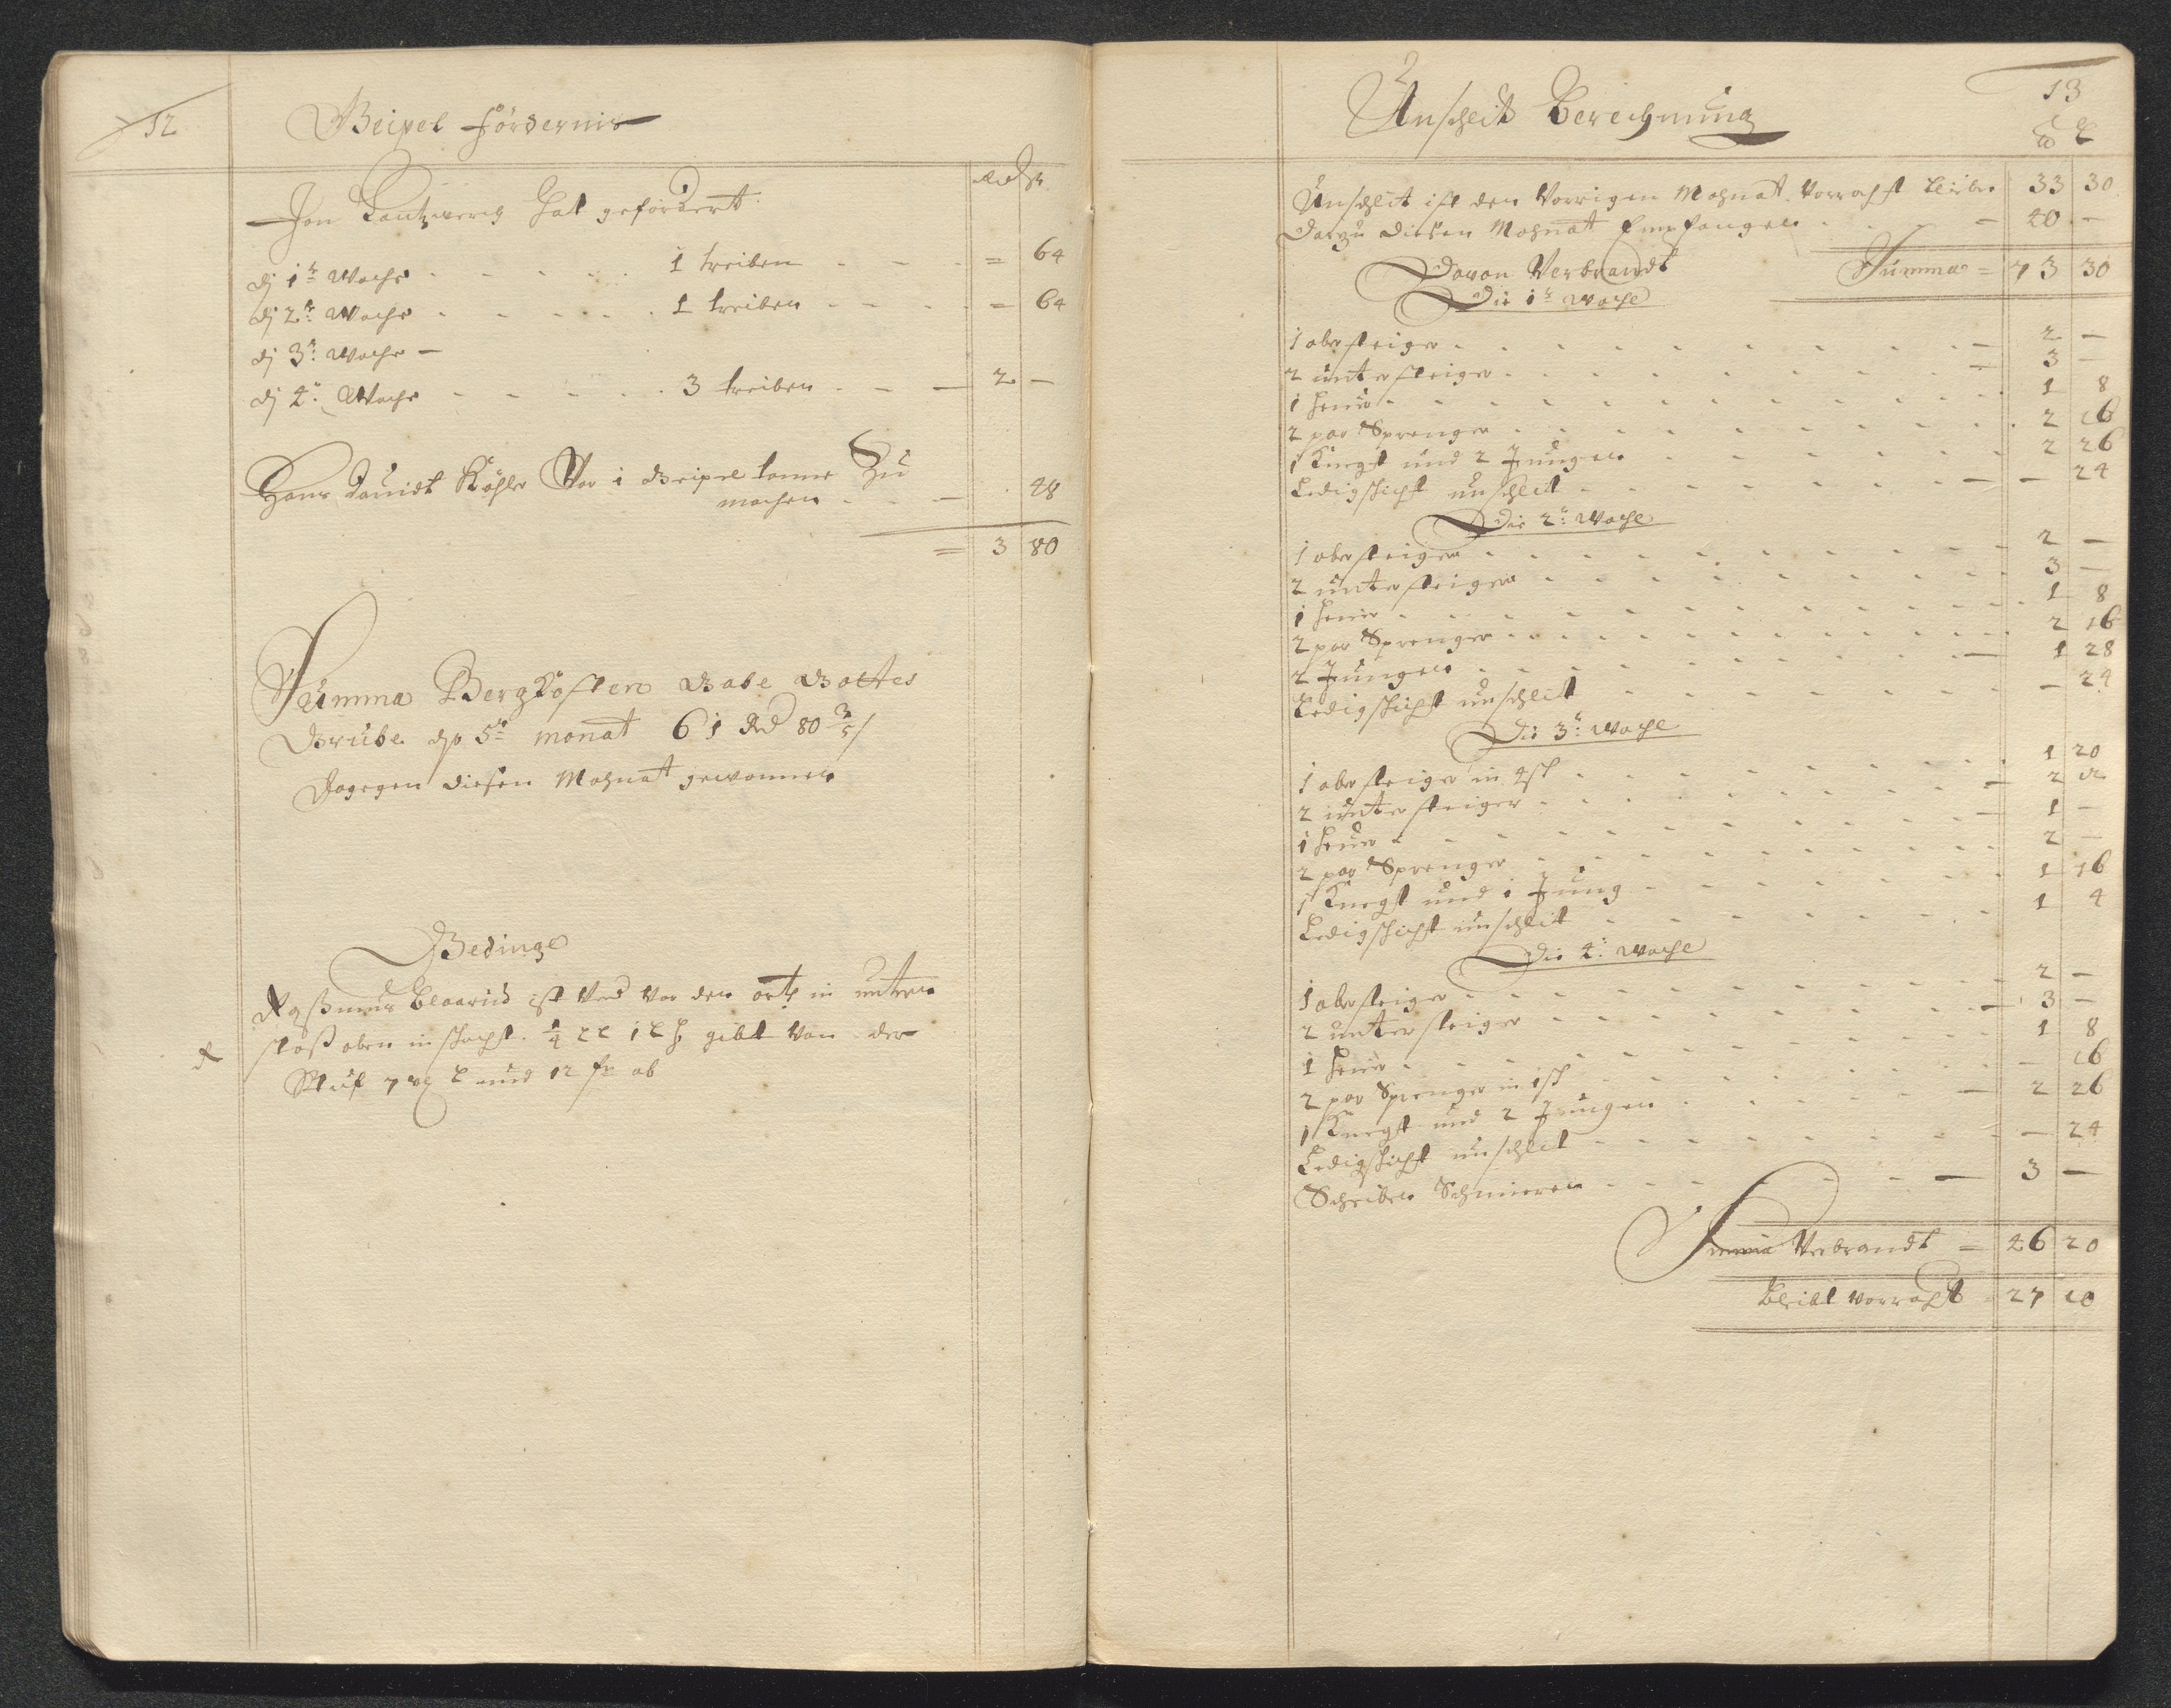 12
Geipel fördernis
Rd ß
Jon Lantzwerg hat gefördert
dj 1te Woche - - - - - 1 treiben - - - = 64
dj 2te Woche - - - - - 1 treiben - - - = 64
dj 3te Woche -
dj 4te Woche - - - - - 3 treiben - - - 2 -
Hans Davidt Köhler Vor 1 Geipel tonne Zu
machen - - - 48
= 3 80
Summa Bergkosten Gabe Gottes
Grube dß 5te monat 61 Rd 80 3/5 /
Dagegen diesen Mohnat gewonnen
Gedinge
Raßmus ist Vor den ortt in untern
stoß oben in schacht 1/4 gibt Von der
Stuf 7 und 12 ab
13
Unschlit Berechnung
℔ L
Unschlit ist den Vorrigen Mohnat Vorracht blieben 33 30
Darzu diesen Mohnat Empfangen - - - 40 -
Summa = 73 30
Davon Verbrandt
Die 1te Woche
1 obersteiger - - - 2 -
2 untersteiger - - - 3 -
1 heuer - - - 1 8
2 par Sprenger - - - 2 16
1 Knegt und 2 Jungen - - - 2 26
Ledigschicht unschlit - - - - 24
Die 2te Woche
1 obersteiger - - - 2 -
2 untersteiger - - - 3 -
1 heuer - - - 1 8
2 par Sprenger - - - 2 16
2 Jungen - - - 1 28
Ledigschicht unschlit - - - - 24
Die 3te Woche
1 obersteiger in 4 sch - - - 1 20
2 untersteiger - - - 2
1 heuer - - - 1 -
2 par Sprenger - - - 2 -
1 Knegt und 1 Jung - - - 1 16
Ledigschicht unschlit - - - 1 4
Die 4te Woche
1 obersteiger - - - 2 -
2 untersteiger - - - 3 -
1 heuer - - - 1 8
2 par Sprenger in 1 sch - - - - 16
1 Knegt und 2 Jungen - - - 2 26
Ledigschicht unschlit - - - - 24
Scheiben Schmieren - - - 3 -
Summa Verbrandt = 46 20
bleibt Vorracht = 27 10